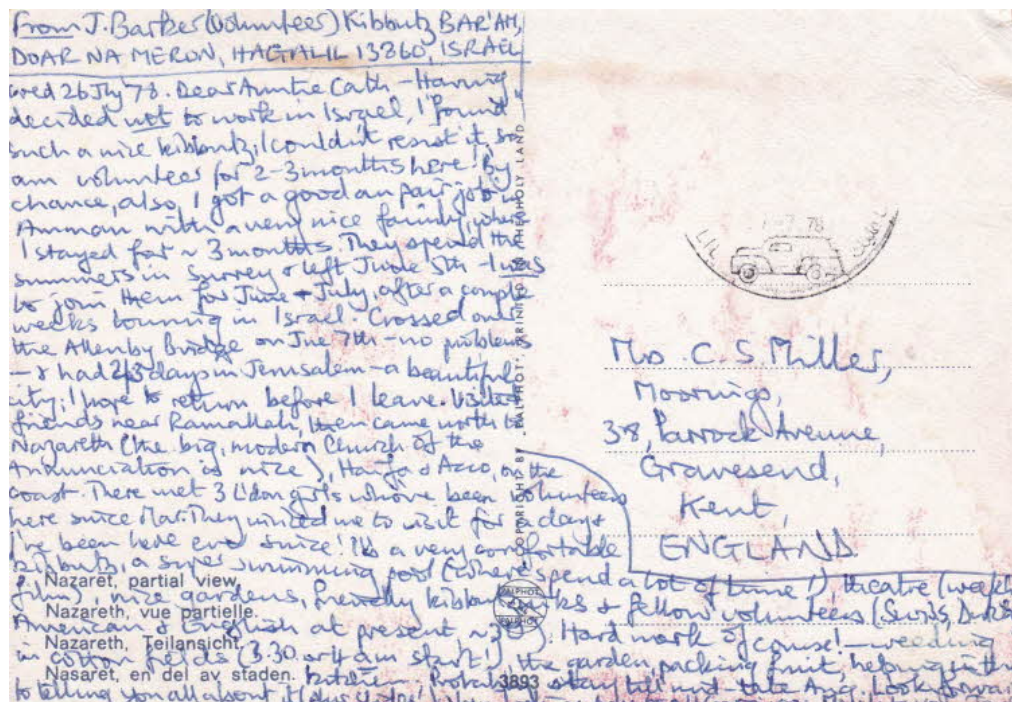 From J. Barker (Volunteer) Kibbutz BAR'AM,
DOAR NA MERON, HAGALIL 13860, ISRAEL
Wed 26 Jly 78. Dear Auntie Cath - Having
decided not to work in Israel, I found
such a nice kibbutz, I couldn't resist it, so
am volunteer for 2-3 months here! By
chance, also, I got a good au pair job in
Amman with a very nice family, where
I stayed for ~ 3 months. They spend the
summers in Surrey & left June 5th - I was
to join them for June & July, after a couple
weeks touring in Israel. Crossed over
the Allenby Bridge on Jne 7th - no problems
- & had 2/3 days in Jerusalem - a beautiful
city; I hope to return before I leave. Visited
friends near Ramallah, then came north to
Nazareth (the big, modern Church of the
Annunciation is nice), Haifa & Acco, on the
coast. There met 3 L'don girls who've been volunteers
here since Mar. They invited me to visit for a day &
I've been here ever since! It's a very comfortable
kibbutz, a super swimming pool (where spend a lot of time!), theatre (weekly
film), nice gardens, friendly kibbutzniks & fellow volunteers (Swiss, Dutch,
American & English at present ~30). Hard work of course! - weeding
in cotton fields (3.30 or 4 am start!), the garden, packing fruit, helping in the
kitchen. Probably stay till mid-late Aug. Look forward
to telling you all about it
Nazaret, partial view.
Nazareth, vue partielle.
Nazareth, Teilansicht.
Nasaret, en del av staden.
3893
COPYRIGHT BY PALPHOT. PRINTED IN THE HOLY LAND
PALPHOT
PALPHOT
7.78
LIL
Mrs. C. S. Miller,
Moorings,
38, Parrock Avenue,
Gravesend,
Kent,
ENGLAND